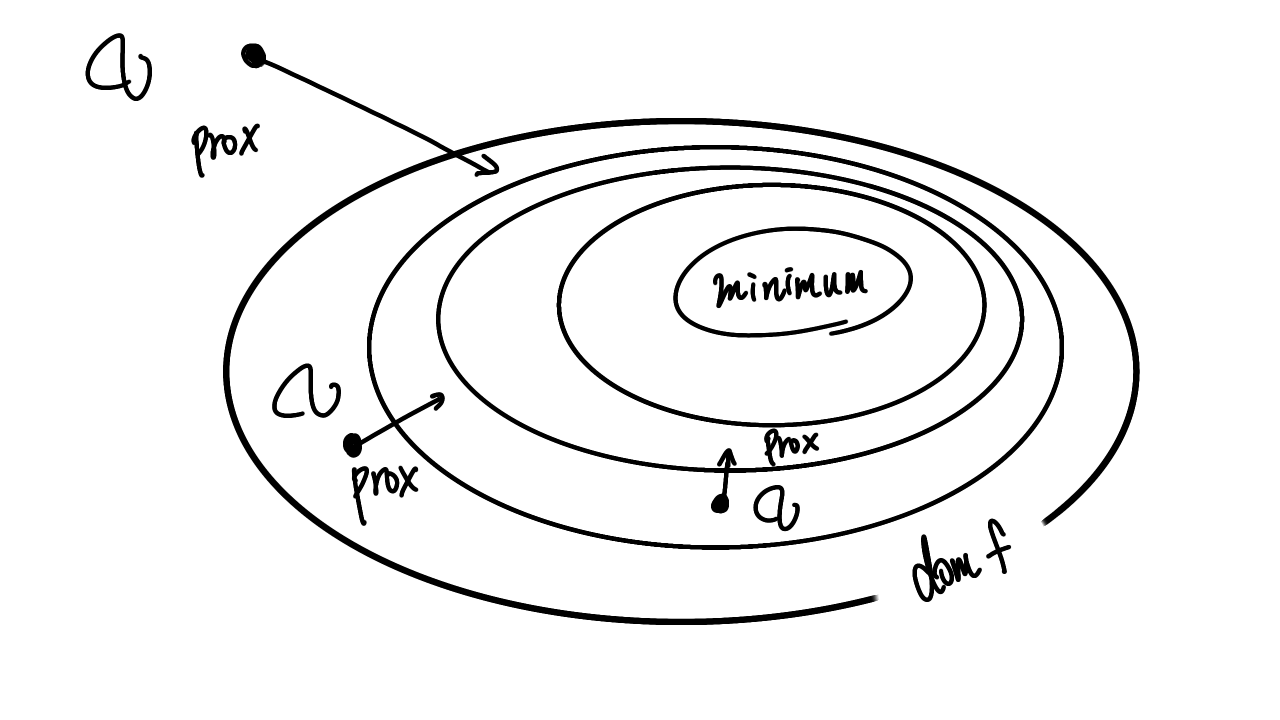 prox
minimum
prox
prox
dom f